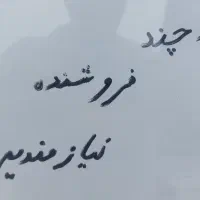 چند
فروشنده
نیازمندیم